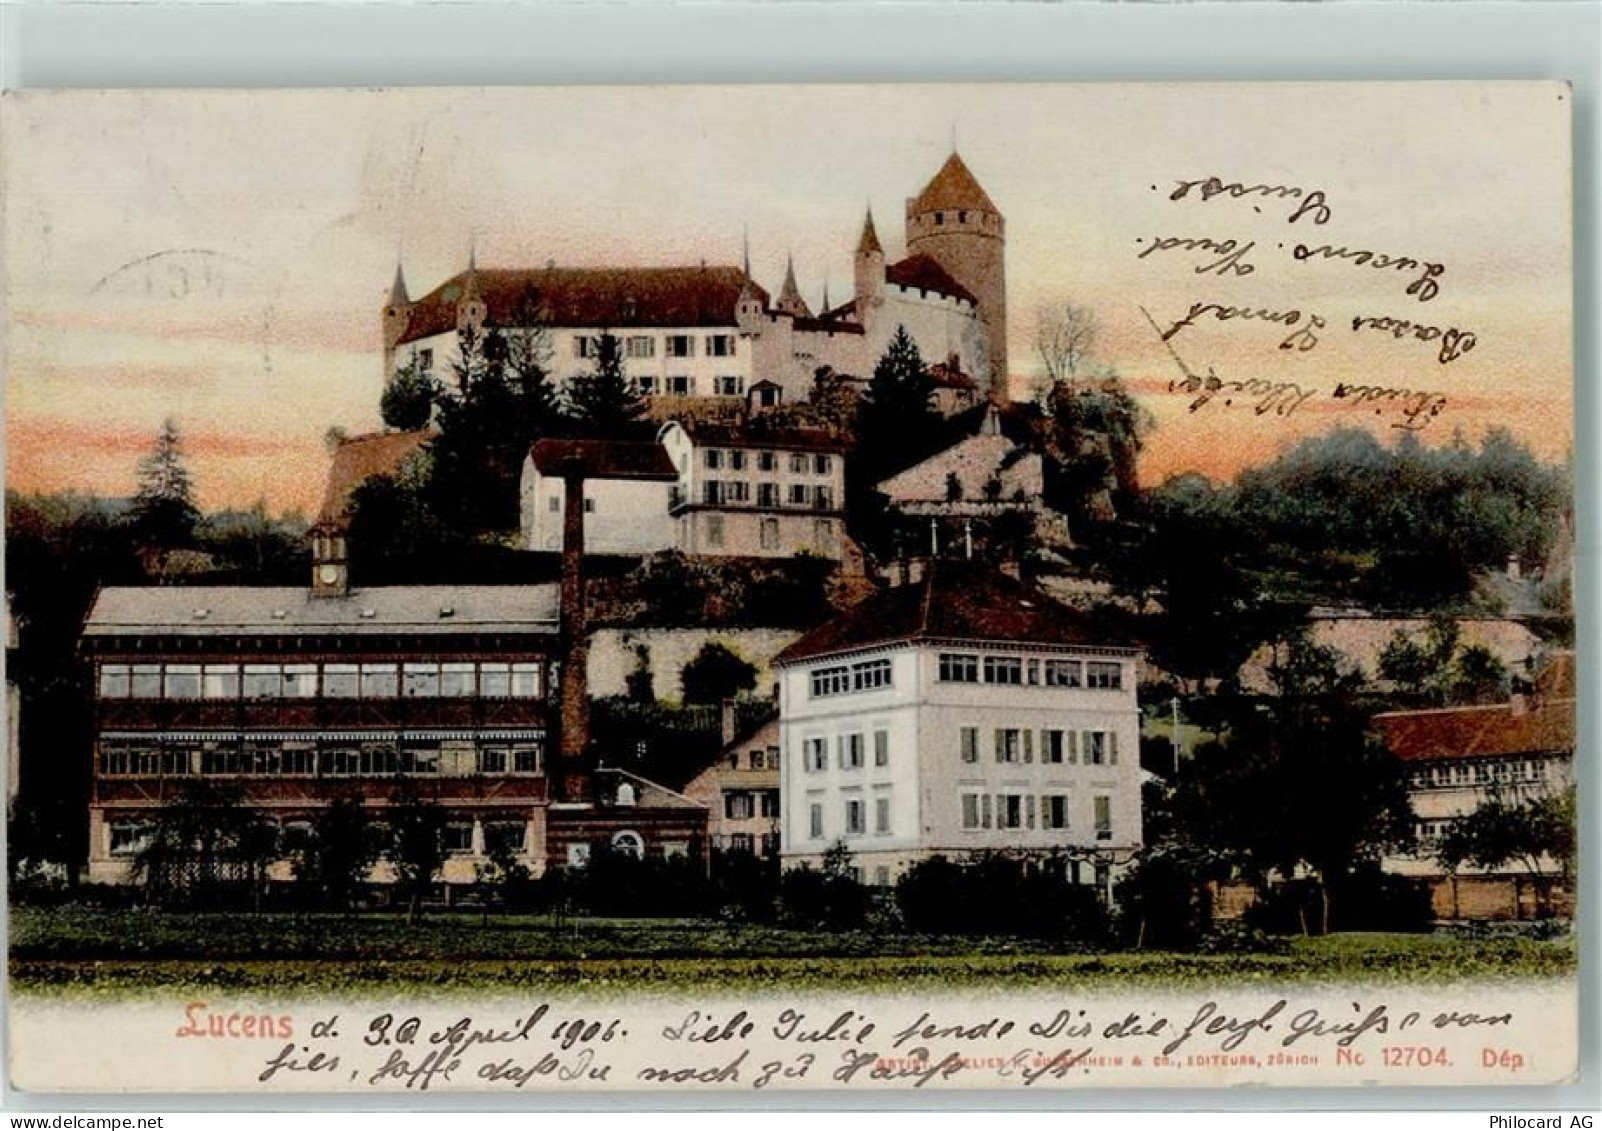 Suisse.
Lucens. Vaud.
Bazar Lonnat
Frida
Lucens d. 30. April 1906. Liebe Julie sende Dir die herzl Grüsse von
hier, hoffe daß Du noch zu Hause bist.
ARTIST. ATELIER H. GUGGENHEIM & CO., EDITEURS, ZÜRICH No 12704. Dép
Philocard AG